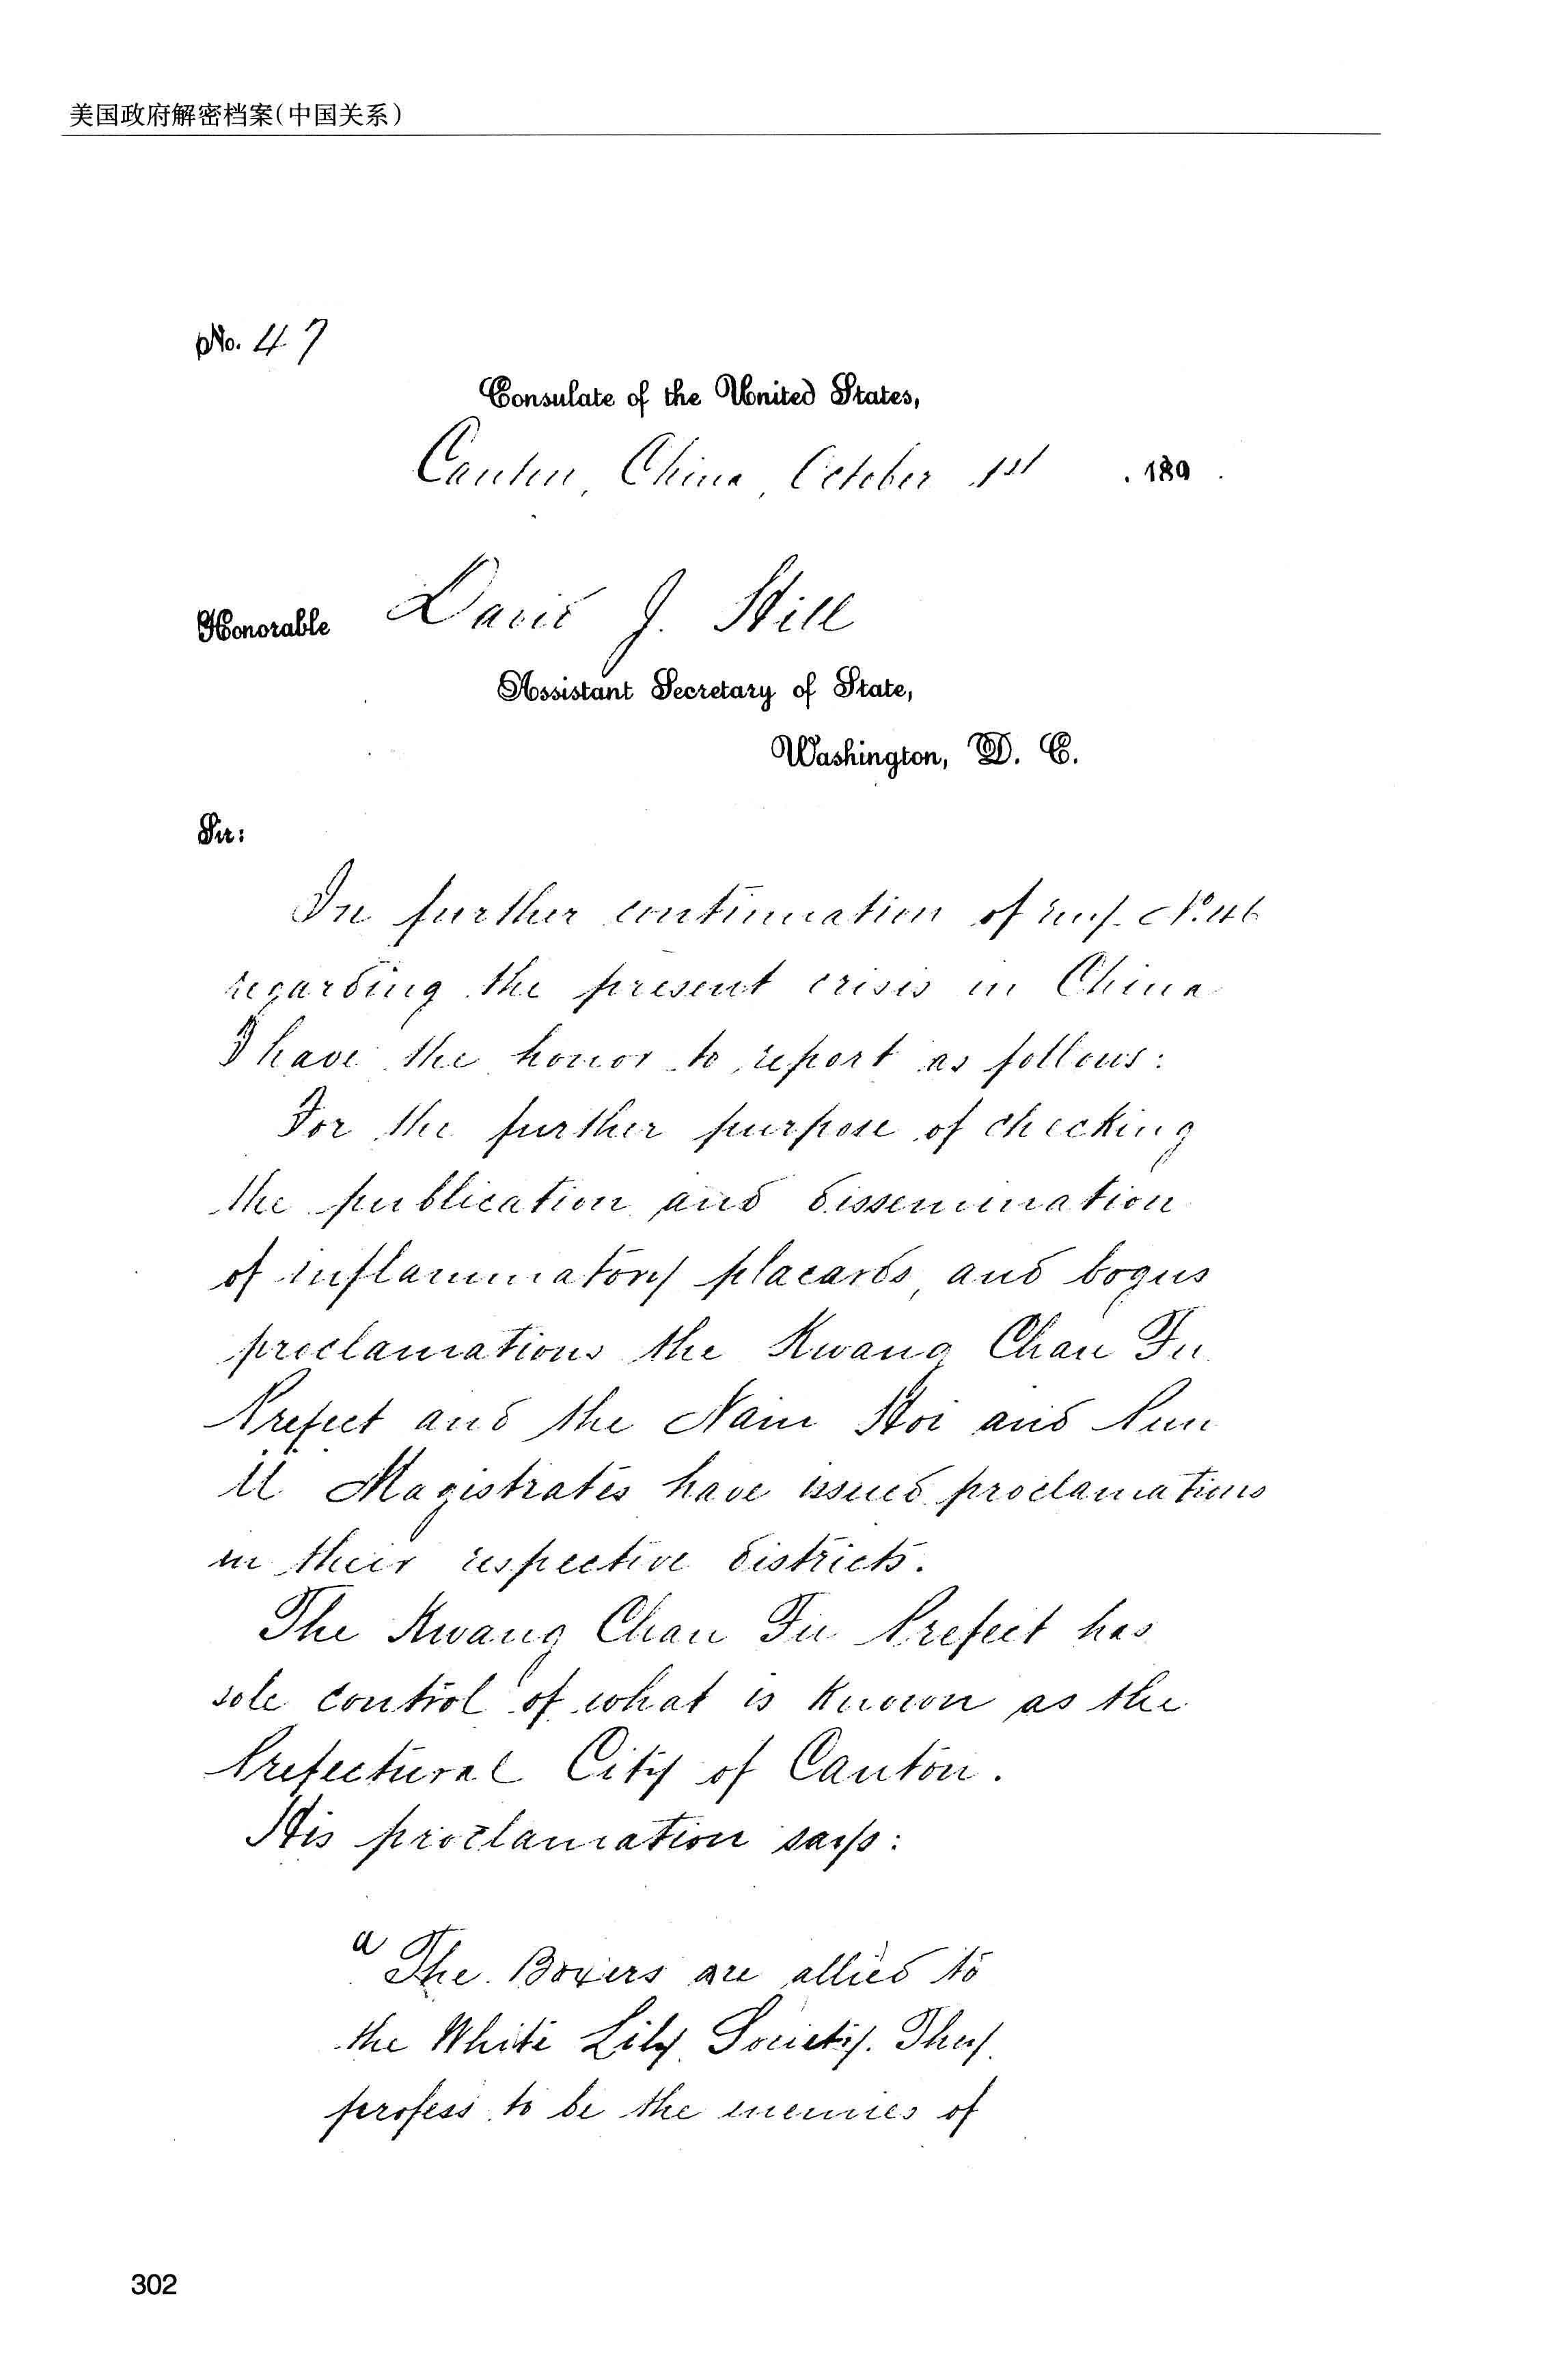 美国政府解密档案(中国关系)
No. 47
Consulate of the United States,
Canton, China, October 1st , 189 .
Honorable David J. Hill
Assistant Secretary of State,
Washington, D. C.
Sir:
In further continuation of my No. 46
regarding the present crisis in China
I have the honor to report as follows:
For the further purpose of checking
the publication and dissemination
of inflammatory placards, and bogus
proclamations the Kwang Chau Fu
Prefect and the Nam Hoi and Pun
U Magistrates have issued proclamations
in their respective districts.
The Kwang Chau Fu Prefect has
sole control of what is known as the
Prefectural City of Canton.
His proclamation says:
"The Boxers are allied to
the White Lily Society. They
profess to be the enemies of
302